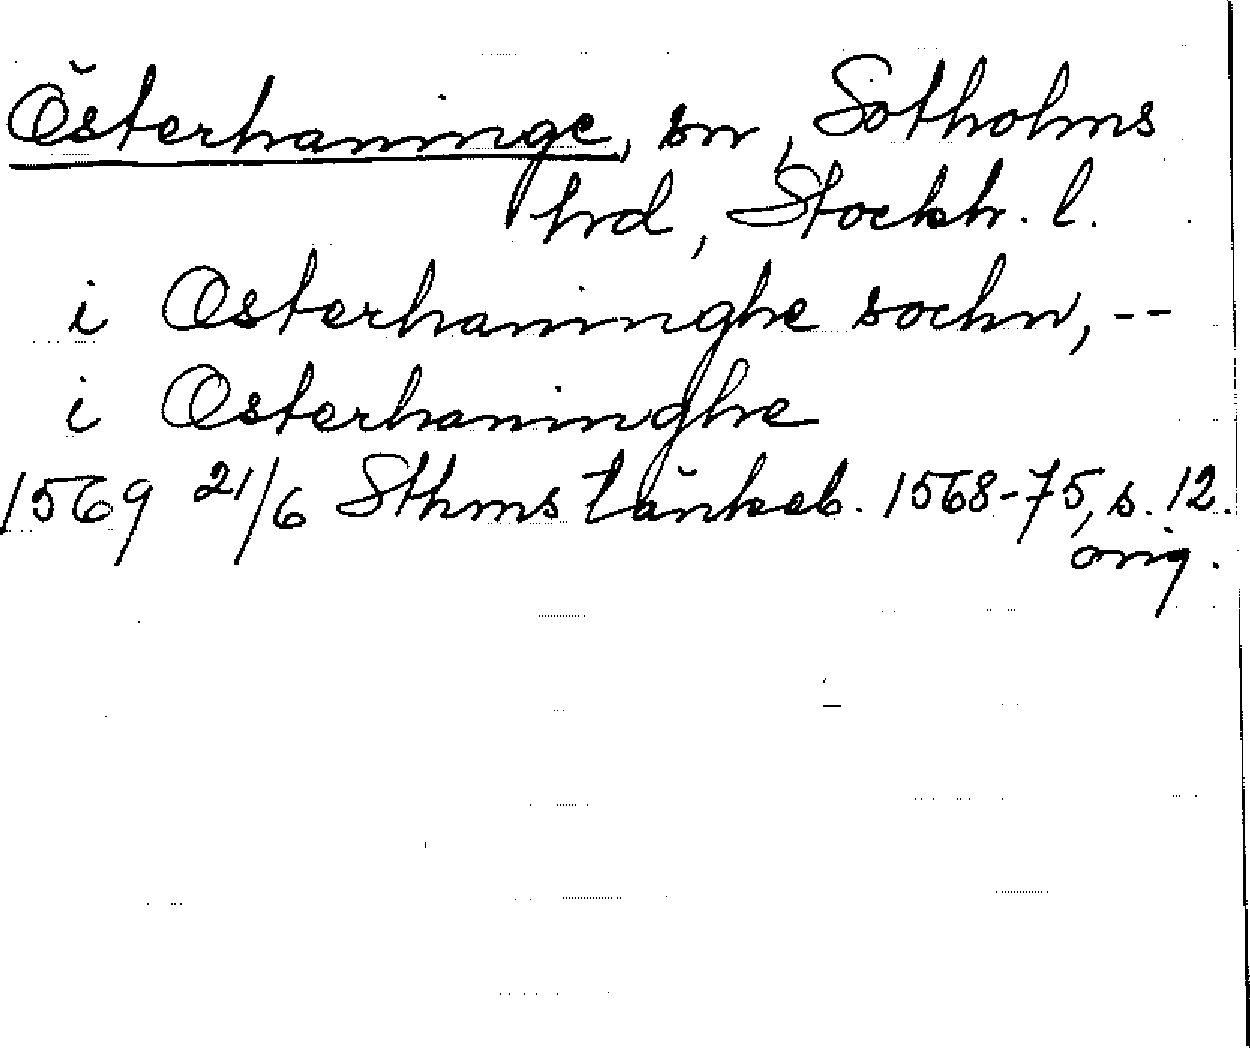 Österhaninge, sn, Sotholms
hrd, Stockh. l.
i Østerhaninghe sochn, --
i Østerhaninghe
1569 21/6 Sthms tänkeb. 1568-75, s. 12.
orig.